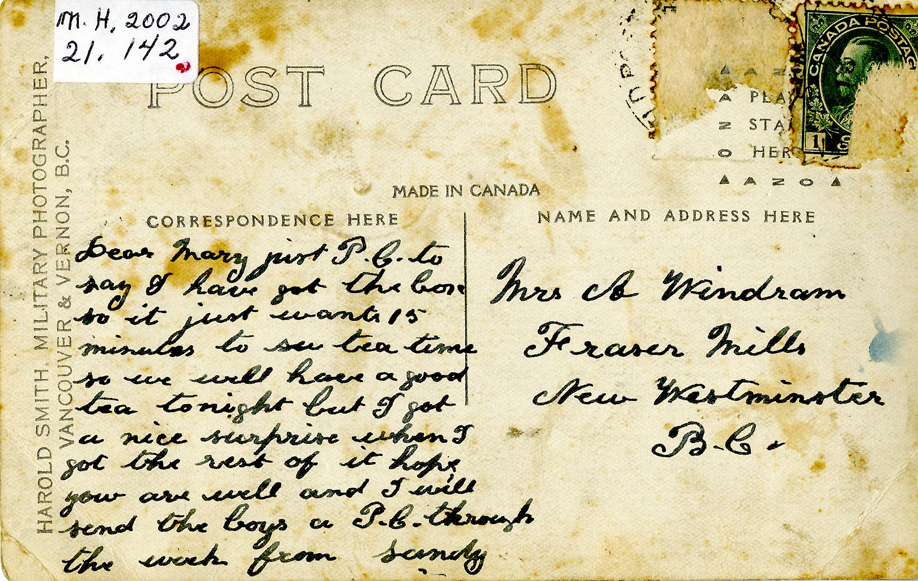 M. H. 2002
21. 142
POST CARD
HAROLD SMITH, MILITARY PHOTOGRAPHER,
VANCOUVER & VERNON, B.C.
CANADA POSTAG
1
AZO
PLA
STA
HER
AZO
MADE IN CANADA
CORRESPONDENCE HERE
Dear Mary just P.C. to
say I have got the box
so it just wants 15
minutes to su tea time
so we will have a good
tea tonight but I got
a nice surprise when I
got the rest of it hope
you are well and I will
send the boys a P.C. through
the week from Sandy
NAME AND ADDRESS HERE
Mrs A Windram
Fraser Mills
New Westminster
B.C.